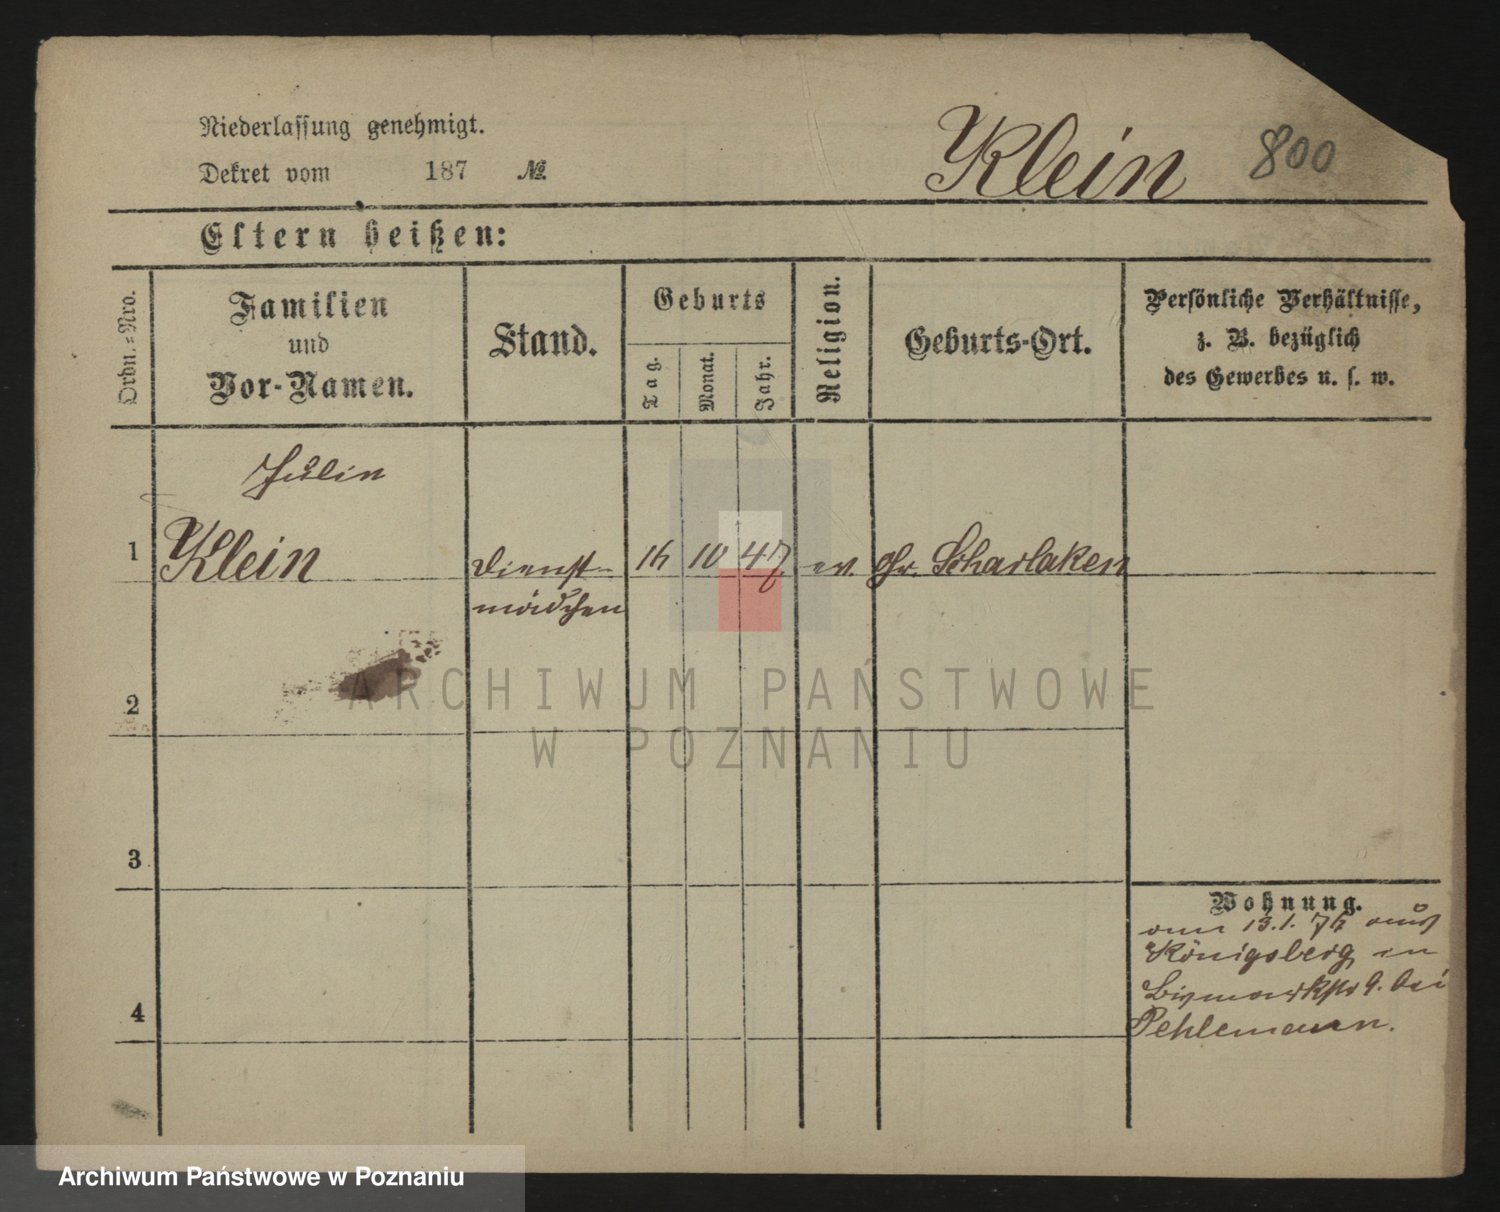 Niederlassung genehmigt.
Dekret vom 187 №.
Klein 800
Eltern heißen:
Ordn.-Nro.
Familien
und
Vor-Namen.
Stand.
Geburts
Tag.
Monat.
Jahr.
Religion.
Geburts-Ort.
Persönliche Verhältnisse,
z. B. bezüglich
des Gewerbes u. s. w.
1
Klein
Dienst-
mädchen
16 10 47 ev. Gr. Scharlaken
2
3
4
Wohnung.
13.1. 76 aus
Königsberg in
Bismarkstr 9. bei
Pehlemann.
ARCHIWUM PAŃSTWOWE
W POZNANIU
Archiwum Państwowe w Poznaniu